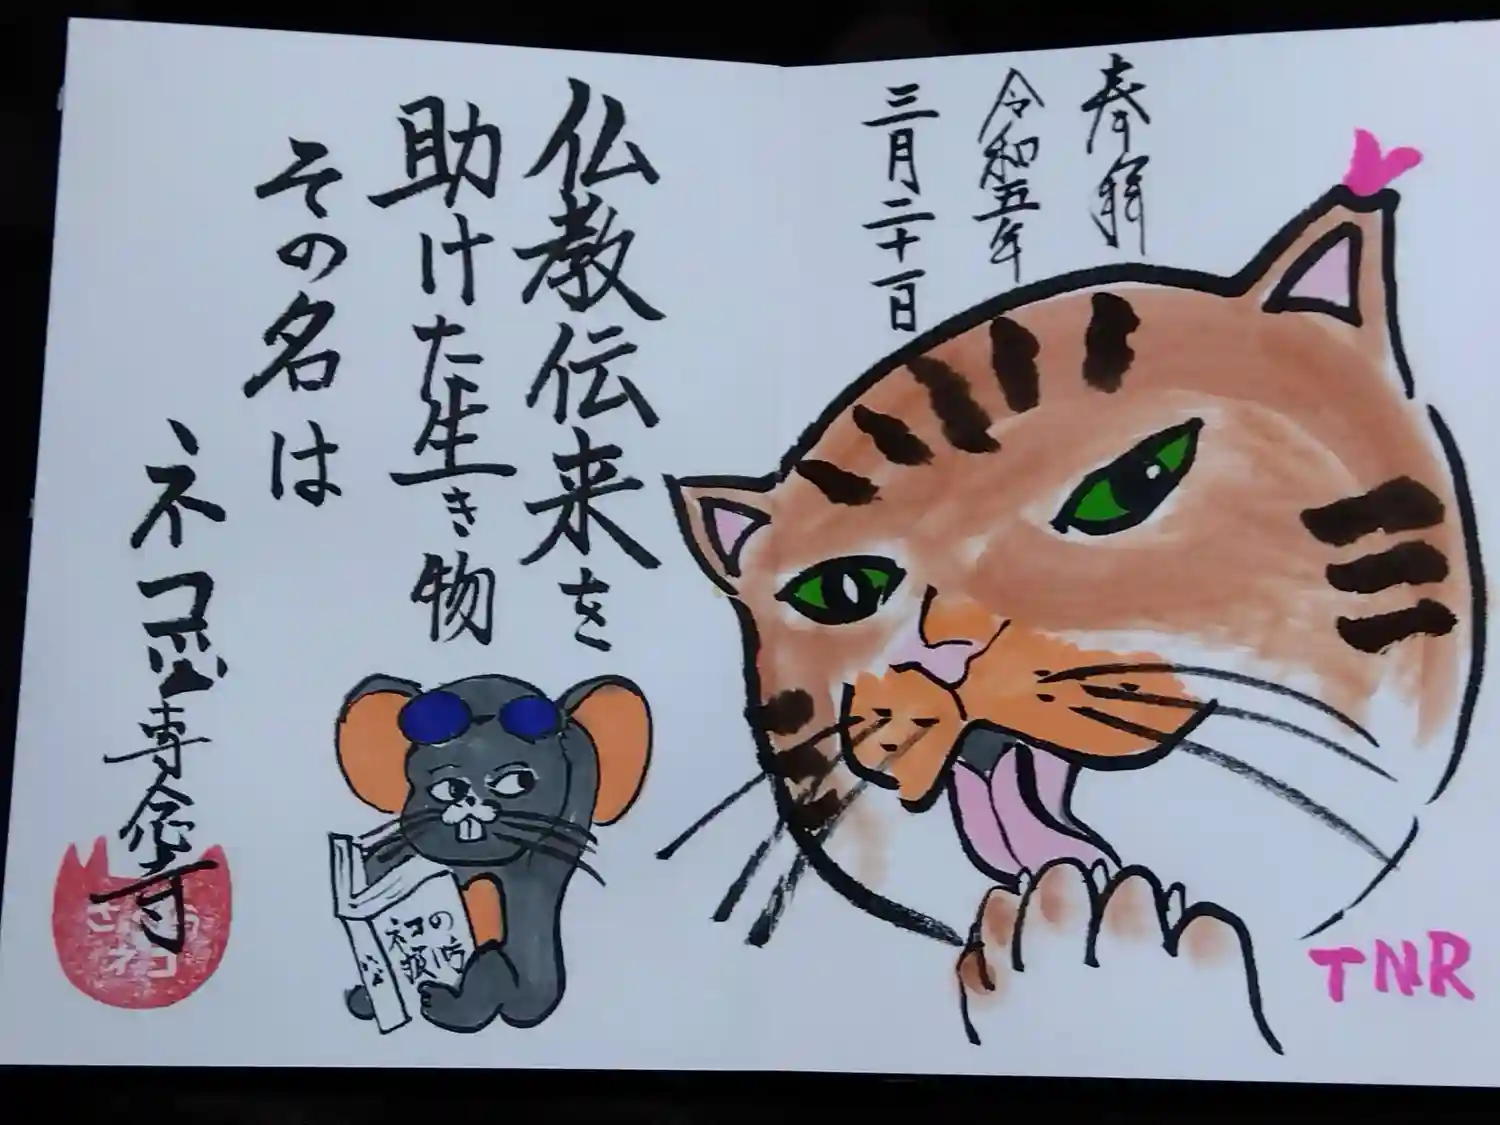 奉拝
令和五年
三月二十一日
仏教伝来を
助けた生き物
その名は
ネコ
専念寺
ネコの
TNR
さくら
ネコ